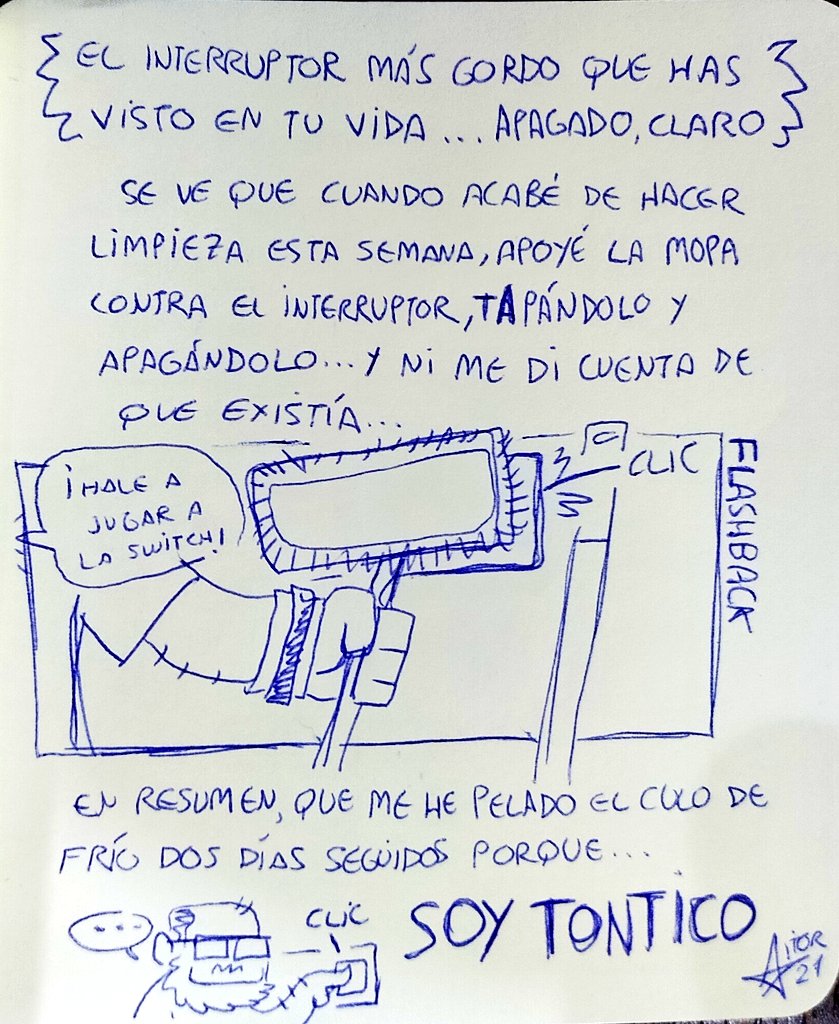 EL INTERRUPTOR MÁS GORDO QUE HAS
VISTO EN TU VIDA... APAGADO, CLARO
SE VE QUE CUANDO ACABÉ DE HACER
LIMPIEZA ESTA SEMANA, APOYÉ LA MOPA
CONTRA EL INTERRUPTOR, TAPÁNDOLO Y
APAGÁNDOLO... Y NI ME DI CUENTA DE
QUE EXISTÍA...
¡HALE A
JUGAR A
LA SWITCH!
CLIC
FLASHBACK
EN RESUMEN, QUE ME HE PELADO EL CULO DE
FRÍO DOS DÍAS SEGUIDOS PORQUE...
...
CLIC
SOY TONTICO
AITOR
21